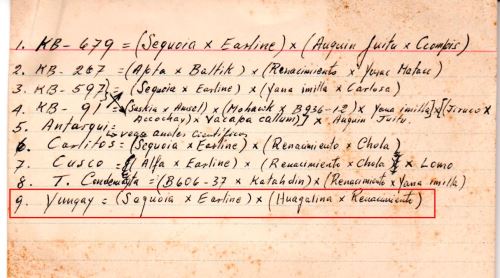 1. KB-679 = (Sequoia x Earline) x (Auquin Juitu x Ccompis)
2. KB-267 = (Apta x Baltik) x (Renacimiento x Yurac Matace)
3. KB-597 = (Sequoia x Earline) x (Yana imilla x Carlosa)
4. KB-91 = (Saskia x Amsel) x (Mohawk x B936-12) x Yana imilla] x [(Jiruco x
5. Antarqui = Accochay) x Vacapa callum)] x Auquin Juitu.
vega anales cientificos
6. Carlitos = (Sequoia x Earline) x (Renacimiento x Chola)
7. Cusco = (Alfa x Earline) x (Renacimiento x Chola) x Lomo
8. T. Condemayta = (B606-37 x Katahdin) x (Renacimiento x Yana imilla)
9. Yungay = (Saquoia x Earline) x (Huagalina x Renacimiento)